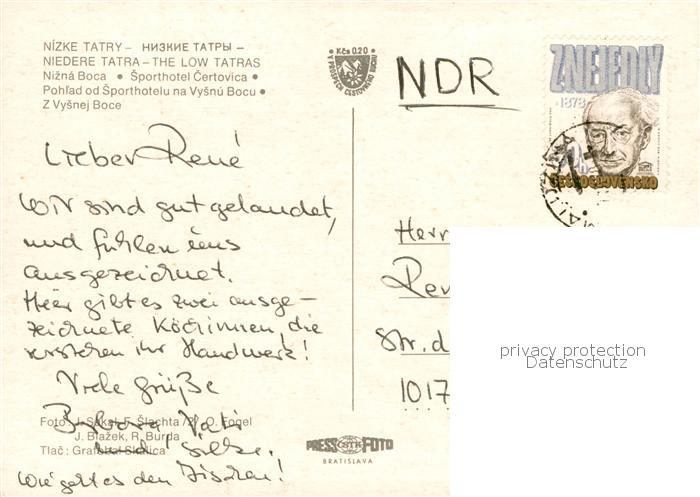 NÍZKE TATRY – НИЗКИЕ ТАТРЫ –
NIEDERE TATRA – THE LOW TATRAS
Nižná Boca • Športhotel Čertovica •
Pohľad od Športhotelu na Vyšnú Bocu •
Z Vyšnej Boce
Kčs 0.20
V PROSPECH CESTOVNÉHO RUCHU
NDR
Z NEJEDLÝ
1878
ČESKOSLOVENSKO
Lieber René
Wir sind gut gelandet,
und fühlen uns
ausgezeichnet.
Hier gibt es zwei ausge-
zeichnete Köchinnen, die
verstehen ihr Handwerk!
Viele Grüße
Barbara, Vati
und Silke.
Wie geht es den Fischen!
Foto: J. Sakal, F. Šlachta /2/, O. Fogel
J. Blažek, R. Burda
Tlač: Grafobal Skalica
PRESS ČSTK FOTO
BRATISLAVA
Herr
Str. d
1017
privacy protection
Datenschutz